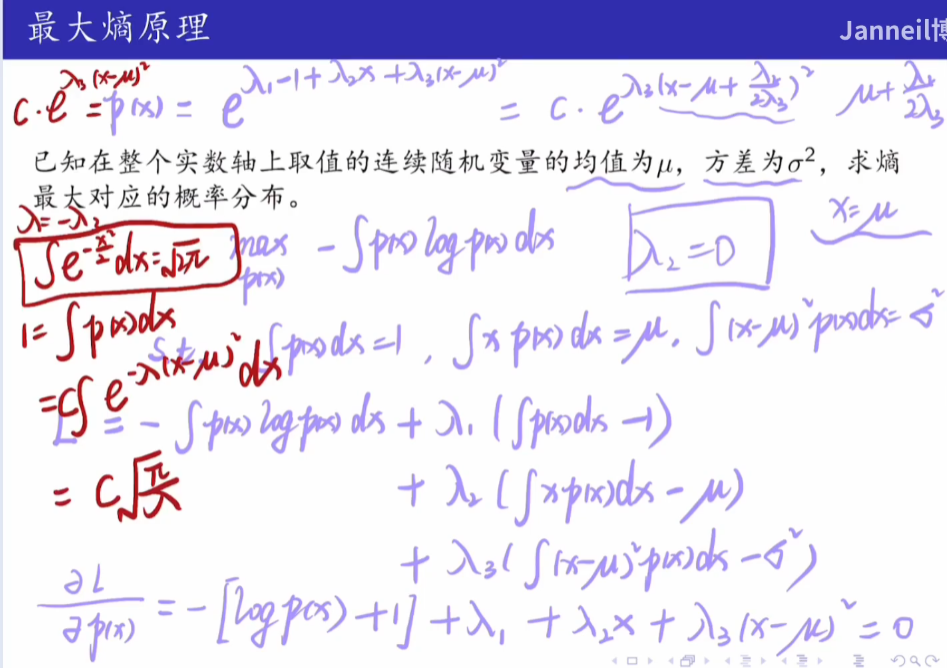 最大熵原理
Janneil博
C·e^{λ₃(x-μ)²} = p(x) = e^{λ₁-1+λ₂x+λ₃(x-μ)²} = C·e^{λ₃(x-μ+\frac{λ₂}{2λ₃})²} μ+\frac{λ₂}{2λ₃}
已知在整个实数轴上取值的连续随机变量的均值为μ，方差为σ²，求熵
最大对应的概率分布。
λ=-λ₂
∫e^{-\frac{x²}{2}}dx=√2π max p(x) -∫p(x) log p(x) dx λ₂=0 x=μ
1=∫p(x)dx
s.t. ∫p(x)dx=1, ∫x p(x) dx=μ, ∫(x-μ)²p(x)dx=σ²
=C∫e^{-λ(x-μ)²}dx
L = -∫p(x) log p(x) dx + λ₁(∫p(x)dx-1)
= C√\frac{π}{λ} + λ₂(∫xp(x)dx-μ)
+ λ₃(∫(x-μ)²p(x)dx-σ²)
\frac{∂L}{∂p(x)} = -[log p(x)+1]+λ₁+λ₂x+λ₃(x-μ)²=0